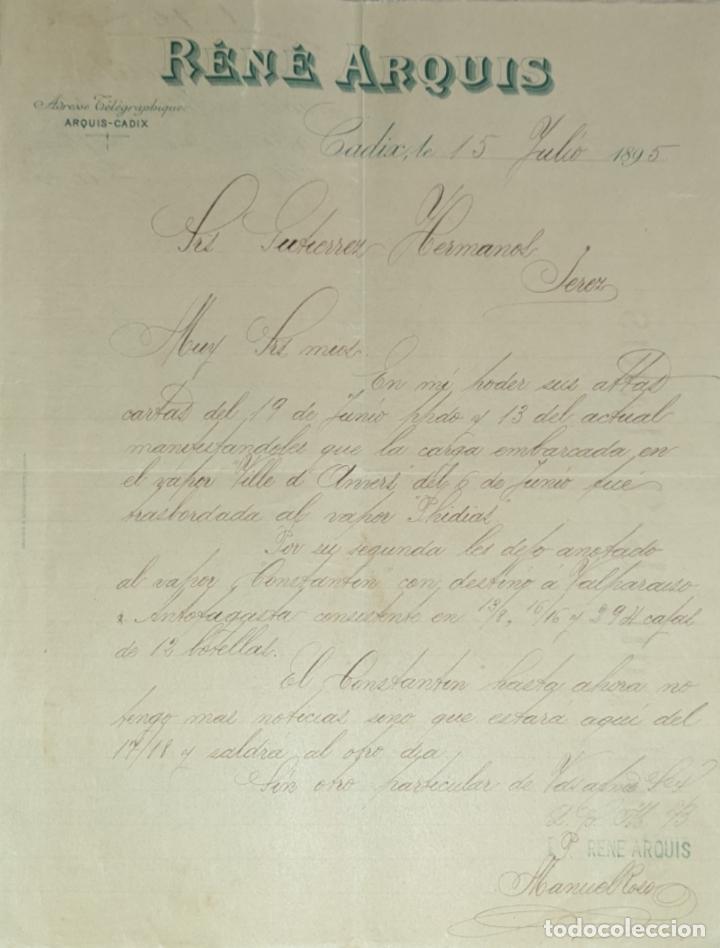 RÉNÉ ARQUIS
Adresse Télégraphique
ARQUIS-CADIX
Cadix, le 15 Julio 1895
Srs Gutierrez Hermanos
Jerez
Muy Srs mios.
En mi poder sus attas
cartas del 19 de Junio ppdo y 13 del actual
manifestandoles que la carga embarcada en
el vapor "Ville d'Anvers" del 6 de Junio fué
trasbordada al vapor "Phidias"
Por su segunda les dejo anotado
al vapor "Constantin" con destino á Valparaiso
Antofagasta consistente en 12/8, 16/16 y 29/4 cajas
de 12 botellas.
El "Constantin" hasta ahora no
tengo mas noticias sino que estará aquí del
17/18 y saldra al otro dia
Sin otro particular de Vds
P. RENE ARQUIS
Manuel Roso
todocoleccion
todocoleccion.net